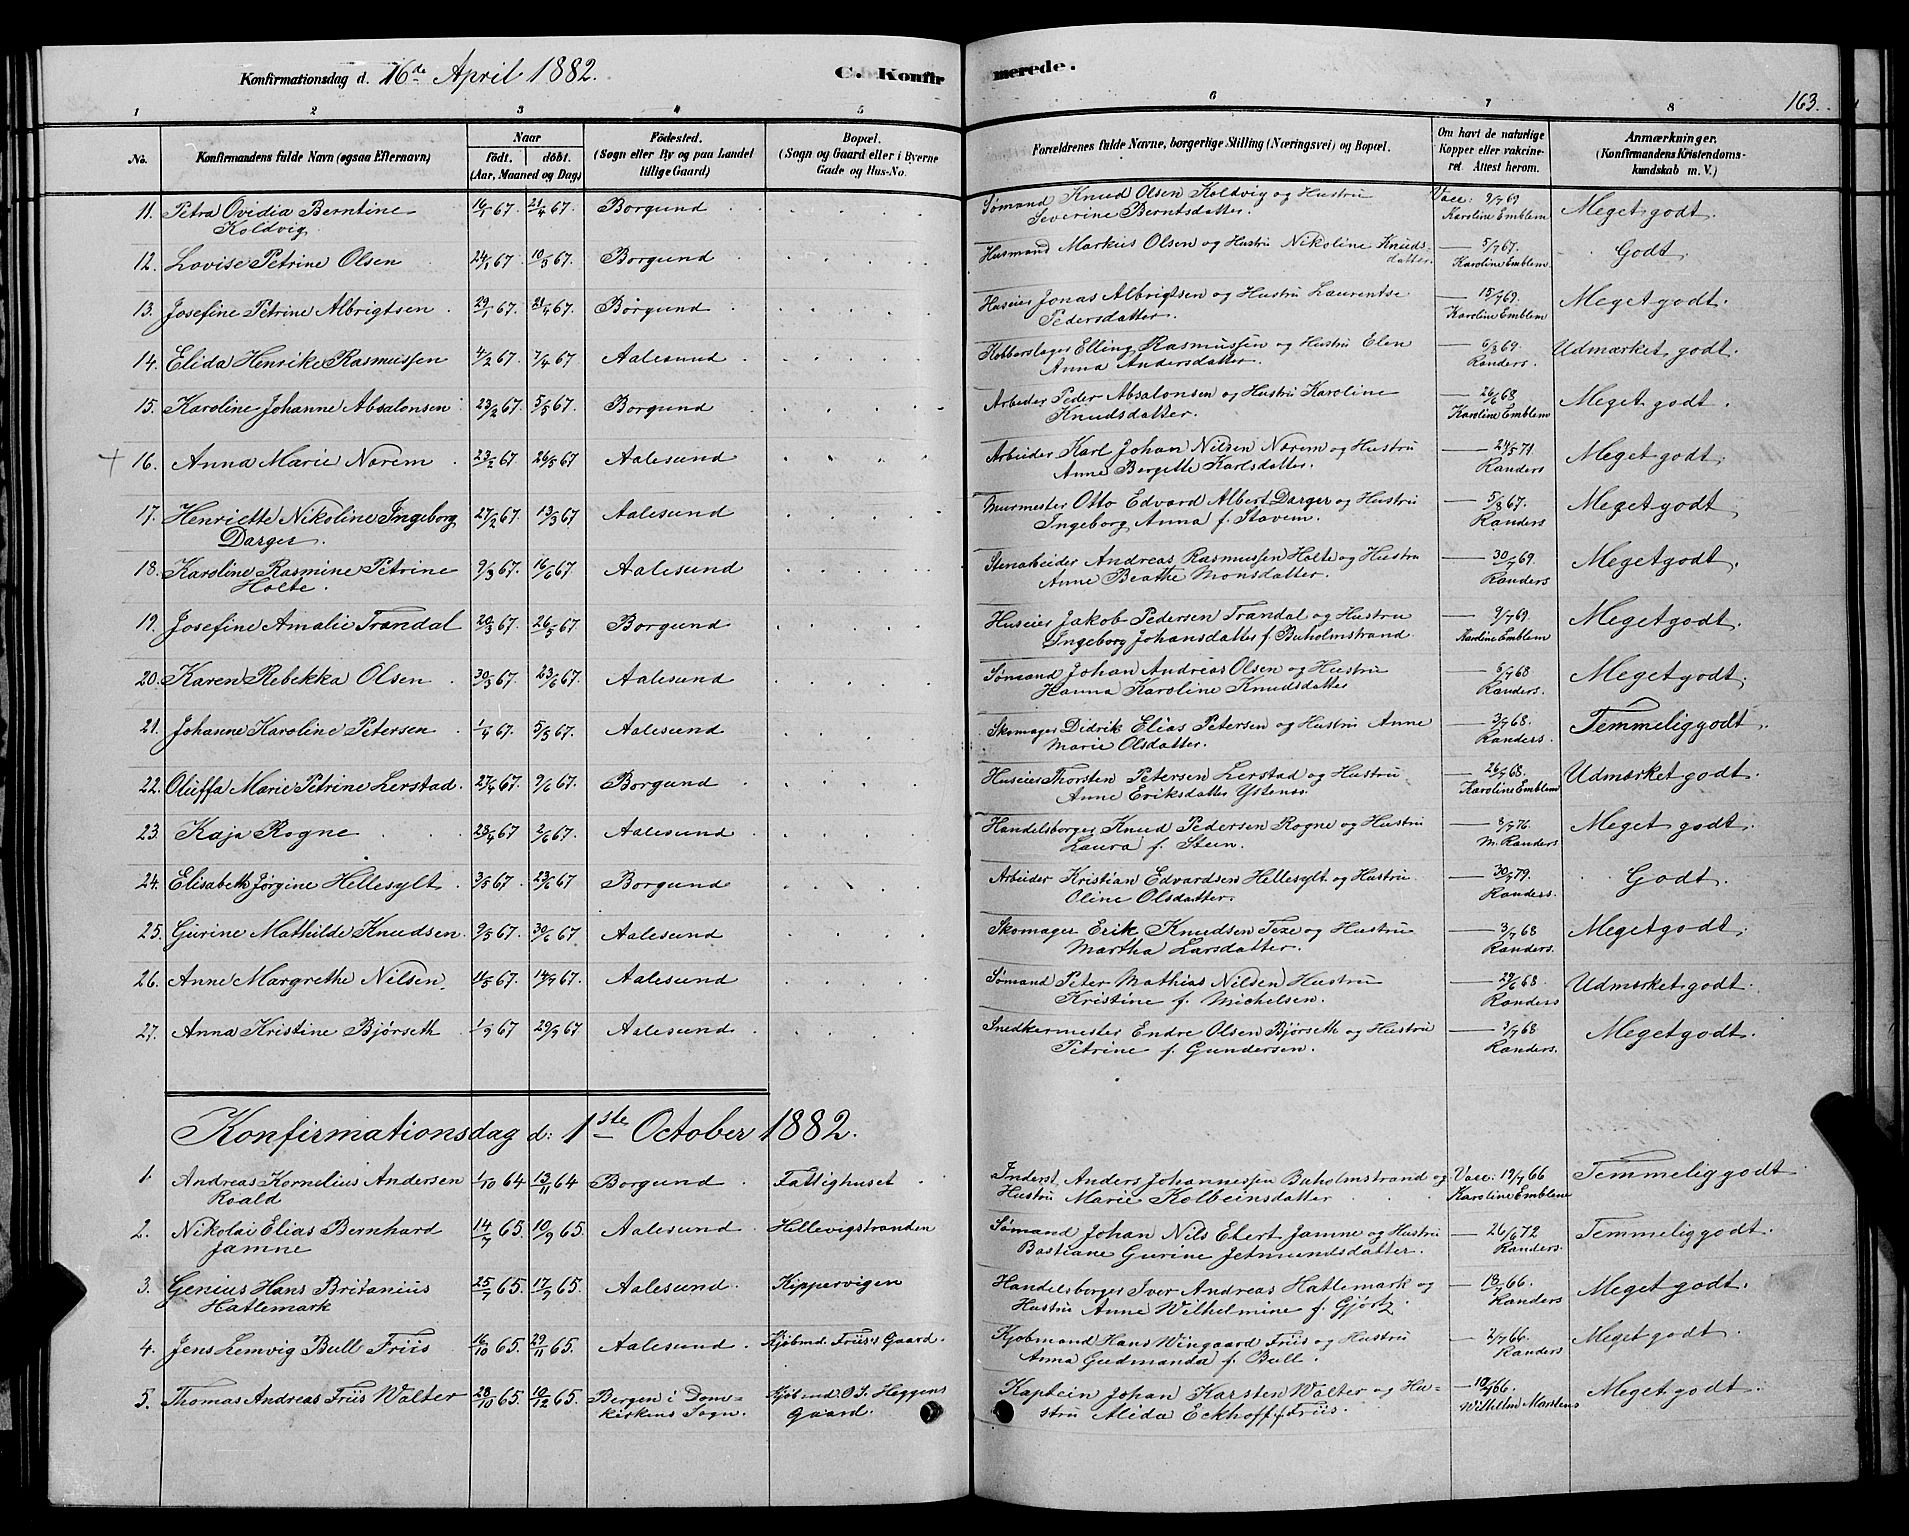 Konfirmationsdag d. 16de April 1882. C. Konfir merede. 163.
1 2 3 4 5 6 7 8
No. Konfirmandens fulde Navn (ogsaa Efternavn) Naar født. døbt. (Aar, Maaned og Dag) Fødested. (Sogn eller By og paa Landet tillige Gaard) Bopæl. (Sogn og Gaard eller i Byerne Gade og Hus-No. Forældrenes fulde Navne, borgerlige Stilling (Næringsvei) og Bopæl. Om havt de naturlige Kopper eller vakcineret. Attest herom. Anmærkninger. (Konfirmandens Kristendomskundskab m. V.)
11. Petra Ovidia Berntine 16/1 67. 21/4 67. Borgund Sømand Knud Olsen Koldvig og Hustru Vacc: 9/7 69 Meget godt.
Koldvig Severine Berntsdatter. Karoline Emblem
12. Lovise Petrine Olsen 24/1 67. 10/3 67. Borgund Husmand Markus Olsen og Hustru Nikoline Knuds- — 5/7 67. Godt.
datter. Karoline Emblem
13. Josefine Petrine Albrigtsen 29/1 67. 21/4 67. Borgund Huseier Jonas Albrigtsen og Hustru Laurentse — 15/7 69. Meget godt.
Pedersdatter. Karoline Emblem
14. Elida Henrike Rasmussen 4/2 67. 7/4 67. Aalesund Kobberslager Elling Rasmussen og Hustru Elen — 6/8 69. Udmærket godt.
Anna Andersdatter. Randers.
15. Karoline Johanne Absalonsen 23/2 67. 5/5 67. Borgund Arbeider Peder Absalonsen og Hustru Karoline — 26/6 68 Meget godt.
Knudsdatter. Karoline Emblem
16. Anna Marie Nørem 23/2 67 26/5 67 Aalesund Arbeider Karl Johan Nilsen Nørem og Hustru — 24/5 71 Meget godt.
Anne Bergitte Karlsdatter. Randers
17. Henriette Nikoline Ingeborg 27/2 67. 13/3 67 Aalesund Murmester Otto Edvard Albert Darger og Hustru — 5/8 67. Meget godt
Darger. Ingeborg Anna f. Stavem. Randers
18. Karoline Rasmine Petrine 9/3 67. 16/6 67. Aalesund Stenarbeider Andreas Rasmussen Holte og Hustru — 30/7 69. Meget godt.
Holte. Anne Beathe Monsdatter. Randers
19. Josefine Amalie Trandal 20/3 67. 26/5 67. Borgund Huseier Jakob Pedersen Trandal og Hustru — 9/7 69 Meget godt.
Ingeborg Johansdatter f. Buholmstrand. Karoline Emblem
20. Karen Rebekka Olsen 30/3 67. 23/6 67. Aalesund Sømand Johan Andreas Olsen og Hustru — 6/7 68 Meget godt.
Hanna Karoline Knudsdatter Randers.
21. Johanne Karoline Petersen 1/4 67. 5/5 67. Aalesund Skomager Didrik Elias Petersen og Hustru Anne — 3/7 68. Temmelig godt.
Marie Olsdatter. Randers.
22. Oluffa Marie Petrine Lerstad. 27/4 67. 9/6 67. Borgund Huseier Thorsten Petersen Lerstad og Hustru — 26/7 68. Udmærket godt.
Anne Eriksdatter Ystenes. Karoline Emblem
23. Kaja Rogne 23/4 67 2/6 67. Aalesund Handelsborger Knud Pedersen Rogne og Hustru — 8/7 76. Meget godt.
Laura f. Steen. M. Randers
24. Elisabeth Jørgine Hellesylt 3/5 67. 23/6 67 Borgund Arbeider Kristian Edvardsen Hellesylt og Hustru — 30/7 79. Godt.
Oline Olsdatter. Randers.
25. Gurine Mathilde Knudsen. 9/5 67. 30/6 67 Aalesund Skomager Erik Knudsen Texe og Hustru — 3/7 68 Meget godt.
Martha Larsdatter. Randers.
26. Anne Margrethe Nilsen. 11/5 67. 14/7 67. Aalesund Sømand Peter Mathias Nilsen Hustru — 29/6 68. Udmærket godt.
Kristine f. Michelsen. Randers
27. Anna Kristine Bjørseth 1/9 67 29/9 67 Aalesund Snedkermester Endre Olsen Bjørseth og Hustru — 3/7 68 Meget godt.
Petrine f. Gundersen. Randers.
Konfirmationsdag d: 1ste October 1882.
1. Andreas Kornelius Andersen 1/10 64 13/11 64 Borgund Fattighuset Inderst Anders Johannessen Buholmstrand og Vacc: 19/7 66 Temmelig godt
Roald Hustru Marie Kolbeinsdatter Karoline Emblem
2. Nikolai Elias Bernhard 14/7 65. 10/9 65. Aalesund Hellevigstranden Sømand Johan Nils Ebert Jamne og Hustru — 26/6 72 Temmelig godt.
Jamne Bastiane Gurine Jetmundsdatter. Randers
3. Genius Hans Britanius 25/7 65. 17/9 65. Aalesund. Kippervigen Handelsborger Iver Andreas Hatlemark og — 18/7 66. Meget godt.
Hatlemark Hustru Anne Wilhelmine f. Gjørtz. Randers
4. Jens Lemvig Bull Friis 16/10 65. 29/11 65. Aalesund. Kjøbmd. Friis's Gaard. Kjøbmand Hans Wingaard Friis og Hustru — 2/7 66. Meget godt.
Anna Gudmanda f. Bull. Randers
5. Thomas Andreas Friis Walter 28/10 65. 10/12 65. Bergen i Dom- Kjøbmd. O. S. Heggens Kaptein Johan Karsten Walter og Hu- — 10/7 66. Meget godt.
kirkens Sogn. Gaard. stru Alida Eckhoff f. Friis. Wilhelm Martens